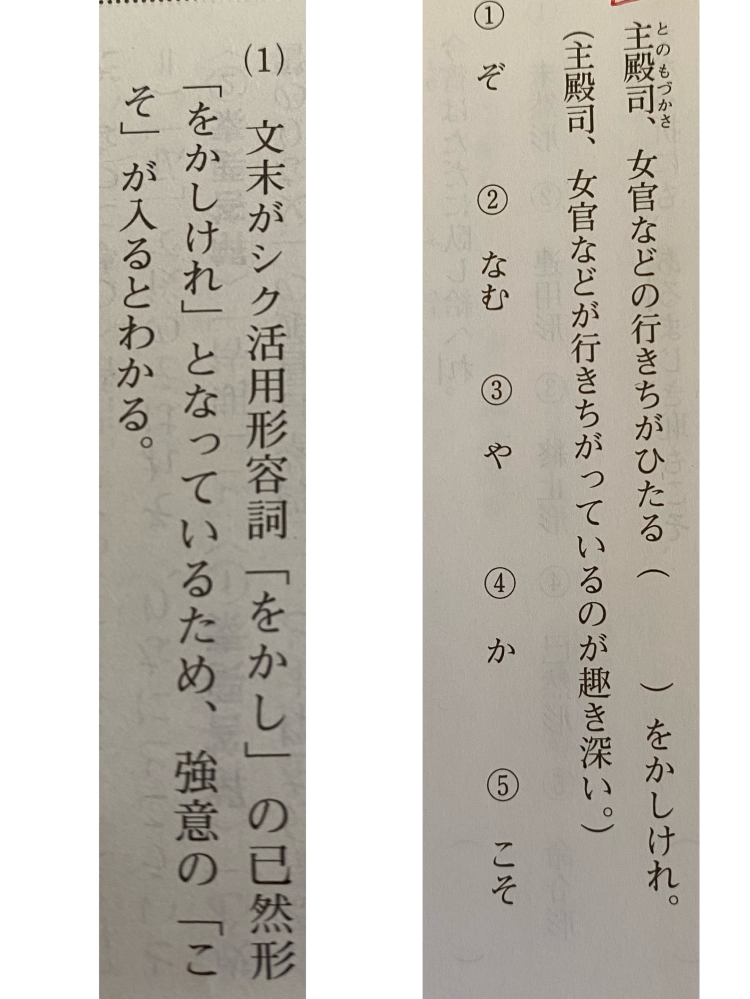 主殿司、女官などの行きちがひたる（　　）をかしけれ。
とのもづかさ
（主殿司、女官などが行きちがっているのが趣き深い。）
① ぞ　② なむ　③ や　④ か　⑤ こそ
(1)　文末がシク活用形容詞「をかし」の已然形
「をかしけれ」となっているため、強意の「こ
そ」が入るとわかる。